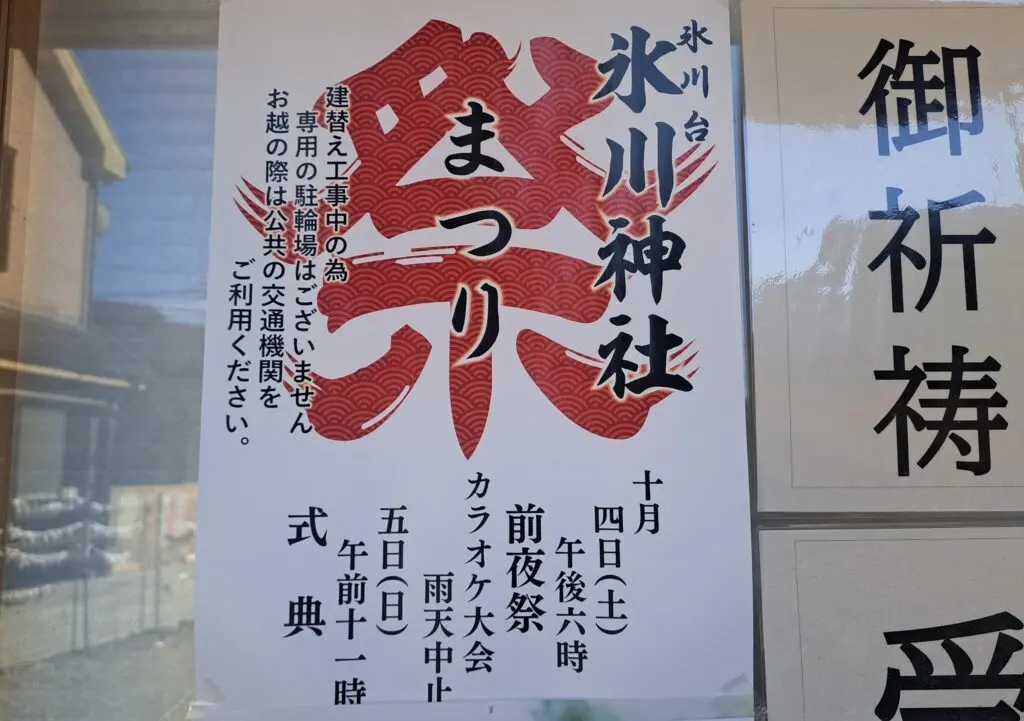 氷川台
氷川神社
まつり
祭
建替え工事中の為
専用の駐輪場はございません
お越の際は公共の交通機関を
ご利用ください。
十月
四日(土)
午後六時
前夜祭
カラオケ大会
雨天中止
五日(日)
午前十一時
式典
御祈祷
受